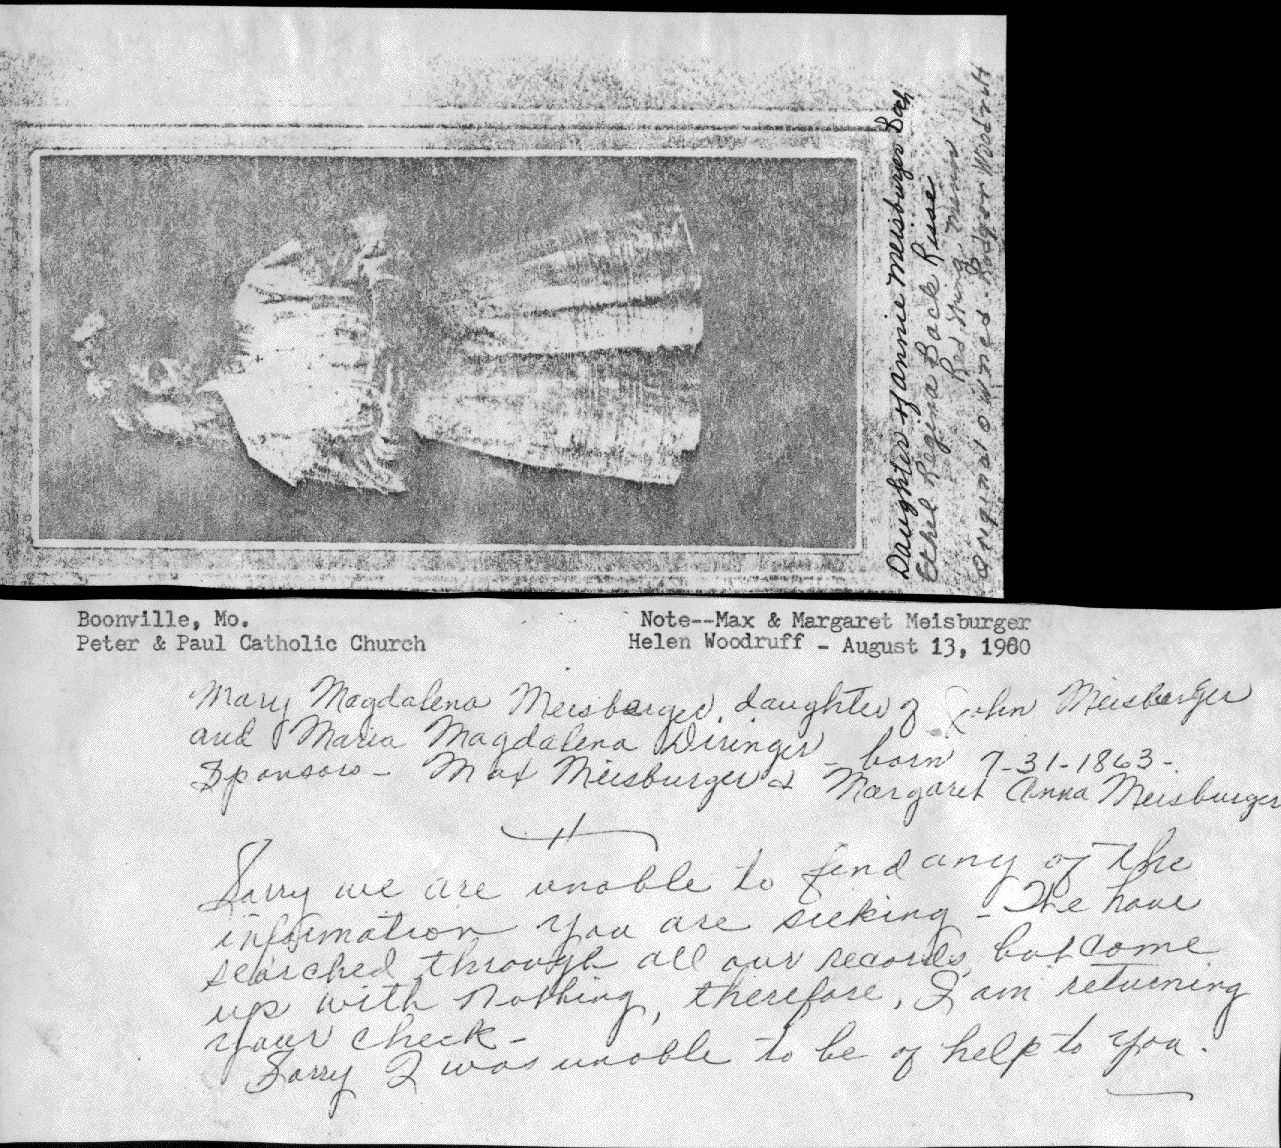 Daughter of Annie Meisburger Back
Ethel Regina Back Russe
Red Wing Minn
Original owned - Rodger Woodruff
Boonville, Mo.
Peter & Paul Catholic Church
Note--Max & Margaret Meisburger
Helen Woodruff - August 13, 1980
Mary Magdalena Meisburger, daughter of John Meisburger
and Maria Magdalena Diringer - born 7-31-1863-.
Sponsors - Max Meisburger & Margaret Anna Meisburger
Sorry we are unable to find any of the
information you are seeking - The have
searched through all our records, but come
up with nothing, therefore, I am returning
your check -
Sorry I was unable to be of help to you.